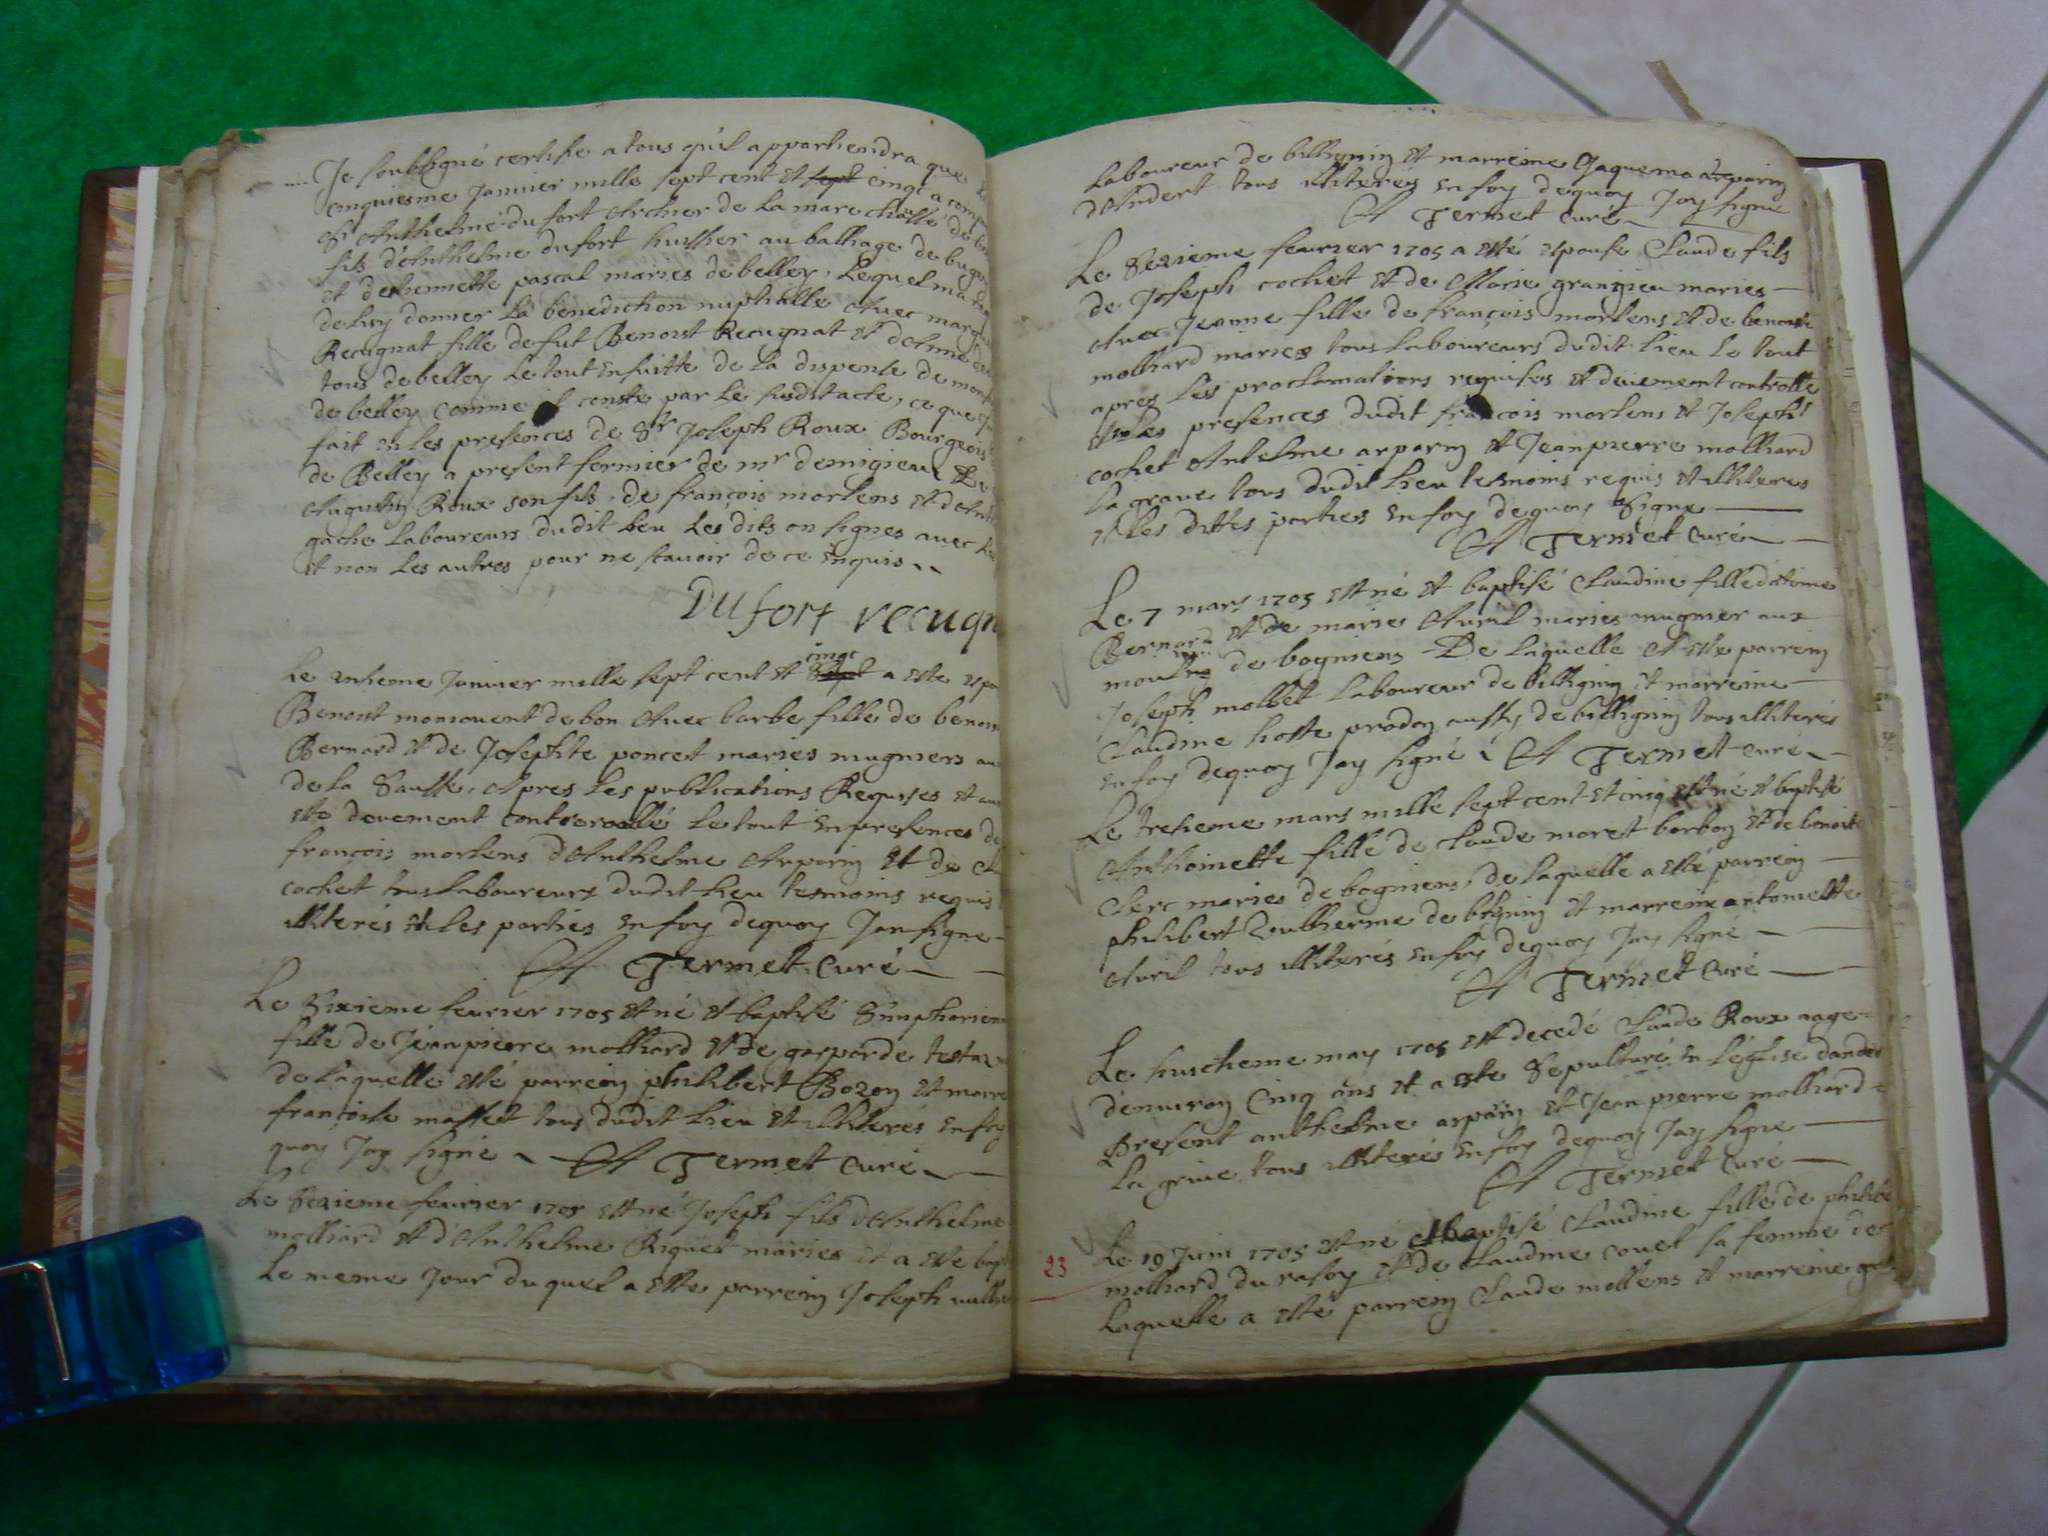 Je soubsigné certifie a tous qu'il appartiendra que
cinquiesme Janvier mille sept cent et sept cinqt a
Sr Anthelme du fort Archer de la mare chaussé de
fils d'Anthelme dufort huissier au balliage de
et de pascal mariés de belley, Lequel ma
de luy donner la benediction nuptialle Avec
Recugnat fille de fut Benoist Recugnat et
tous de belley le tout ensuitte de la dispense de
de belley comme il conste par le susdit acte, ce que
fait en les presences de Sr Joseph Roux Bourgeois
de Belley a present fermier de mr demigieu
Augustin Roux son fils, de françois mortens et
gache Laboureurs dudit lieu les dits on signes avec
et non les autres pour ne scavoir de ce enquis
Dufort recugn
Le Janvier mille sept cent et cinqt sept a este
Benoist de bon Avec barbe fille de
Bernard et de Josephte poncet mariés mugniers
de la Sausse, Apres les publications Requises et
este devement controrollé le tout en presences
françois mortens d'Anthelme Arparin et de
cochet tous laboureurs dudit lieu tesmoins requis
illiterés et les parties en foy dequoy Jay signe
A Termet Curé
Le Sixieme fevrier 1705 est né et baptisé
fille de Jeanpierre molliard et de gasparde
de laquelle esté parrein philibert Bozon et
françoise masset tous dudit lieu et illiterés en foy
quoy Jay signé A Termet Curé
Le Sezieme fevrier 1705 est né Joseph fils d'Anthelme
molliard et d'Anthelme Riquet mariés et a este
Le meme Jour duquel a este parrein Joseph
Laboureur de billignin et marreine Jaquema arparin
d'Andert tous illiterés en foy dequoy Jay signé
A Termet Curé
Le Sezieme fevrier 1705 a esté epousé Claude fils
de Joseph cochet et de Marie grangieu mariés
Avec Jeanne fille de françois mortens et de
molliard mariés tous laboureurs dudit lieu le tout
apres les proclamations requises et deuement
en les presences dudit françois mortens et Joseph
cochet Antelme arparin et Jeanpierre molliard
la grave tous dudit lieu tesmoins requis et illiteres
et les dittes parties en foy dequoy Signe
A Termet Curé
Le 7 mars 1705 est né et baptisé Claudine fille
Bernard et de marie Avril mariés mugnier aux
moulins de bogniens De laquelle A este parrein
Joseph mollet Laboureur de billignin et marreine
Claudine hoste prodon aussy de billignin tous illiterés
en foy dequoy Jay signé A Termet Curé
Le treseme mars mille sept cent et cinq est né et baptisé
Anthoinette fille de Claude moret borbon et de
Clerc mariés de bogniens, de laquelle a esté parrein
philibert de et marreine antoinette
Avril tous illiterés en foy dequoy Jay signé
A Termet Curé
Le may 1705 est decedé Claude Roux aage
d'environ Cinq ans et a este Sepulturé en l'église
Present anthelme arparin et Jean pierre molliard
la grive tous illiterés en foy dequoy Jay signe
A Termet Curé
23
Le 19 Juin 1705 est né et baptisé Claudine fille de
molliard du rafoy et de Claudine couet sa femme de
laquelle a esté parrein Claude mollens et marreine